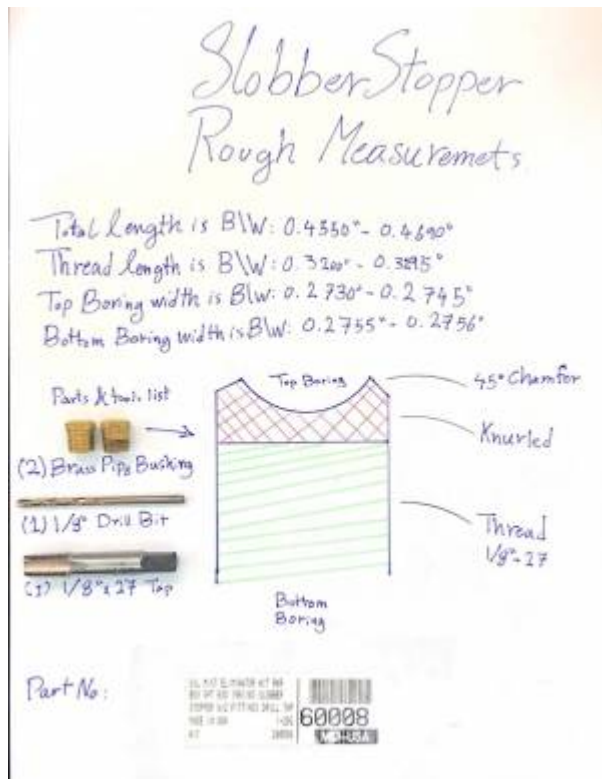 Slobber Stopper
Rough Measuremets
Total length is B\W: 0.4350" - 0.4690"
Thread length is B\W: 0.3200" - 0.3295"
Top Boring width is B\W: 0.2730" - 0.2745"
Bottom Boring width is B\W: 0.2755" - 0.2756"
Parts & tools list
(2) Brass Pipe Bushing
(1) 1/8" Drill Bit
(1) 1/8" x 27 Tap
Top Boring
45° Chamfer
Knurled
Thread
1/8" - 27
Bottom
Boring
Part No:
OIL MIST ELIMINATOR KIT
STOPPER
KIT
60008
MID-USA